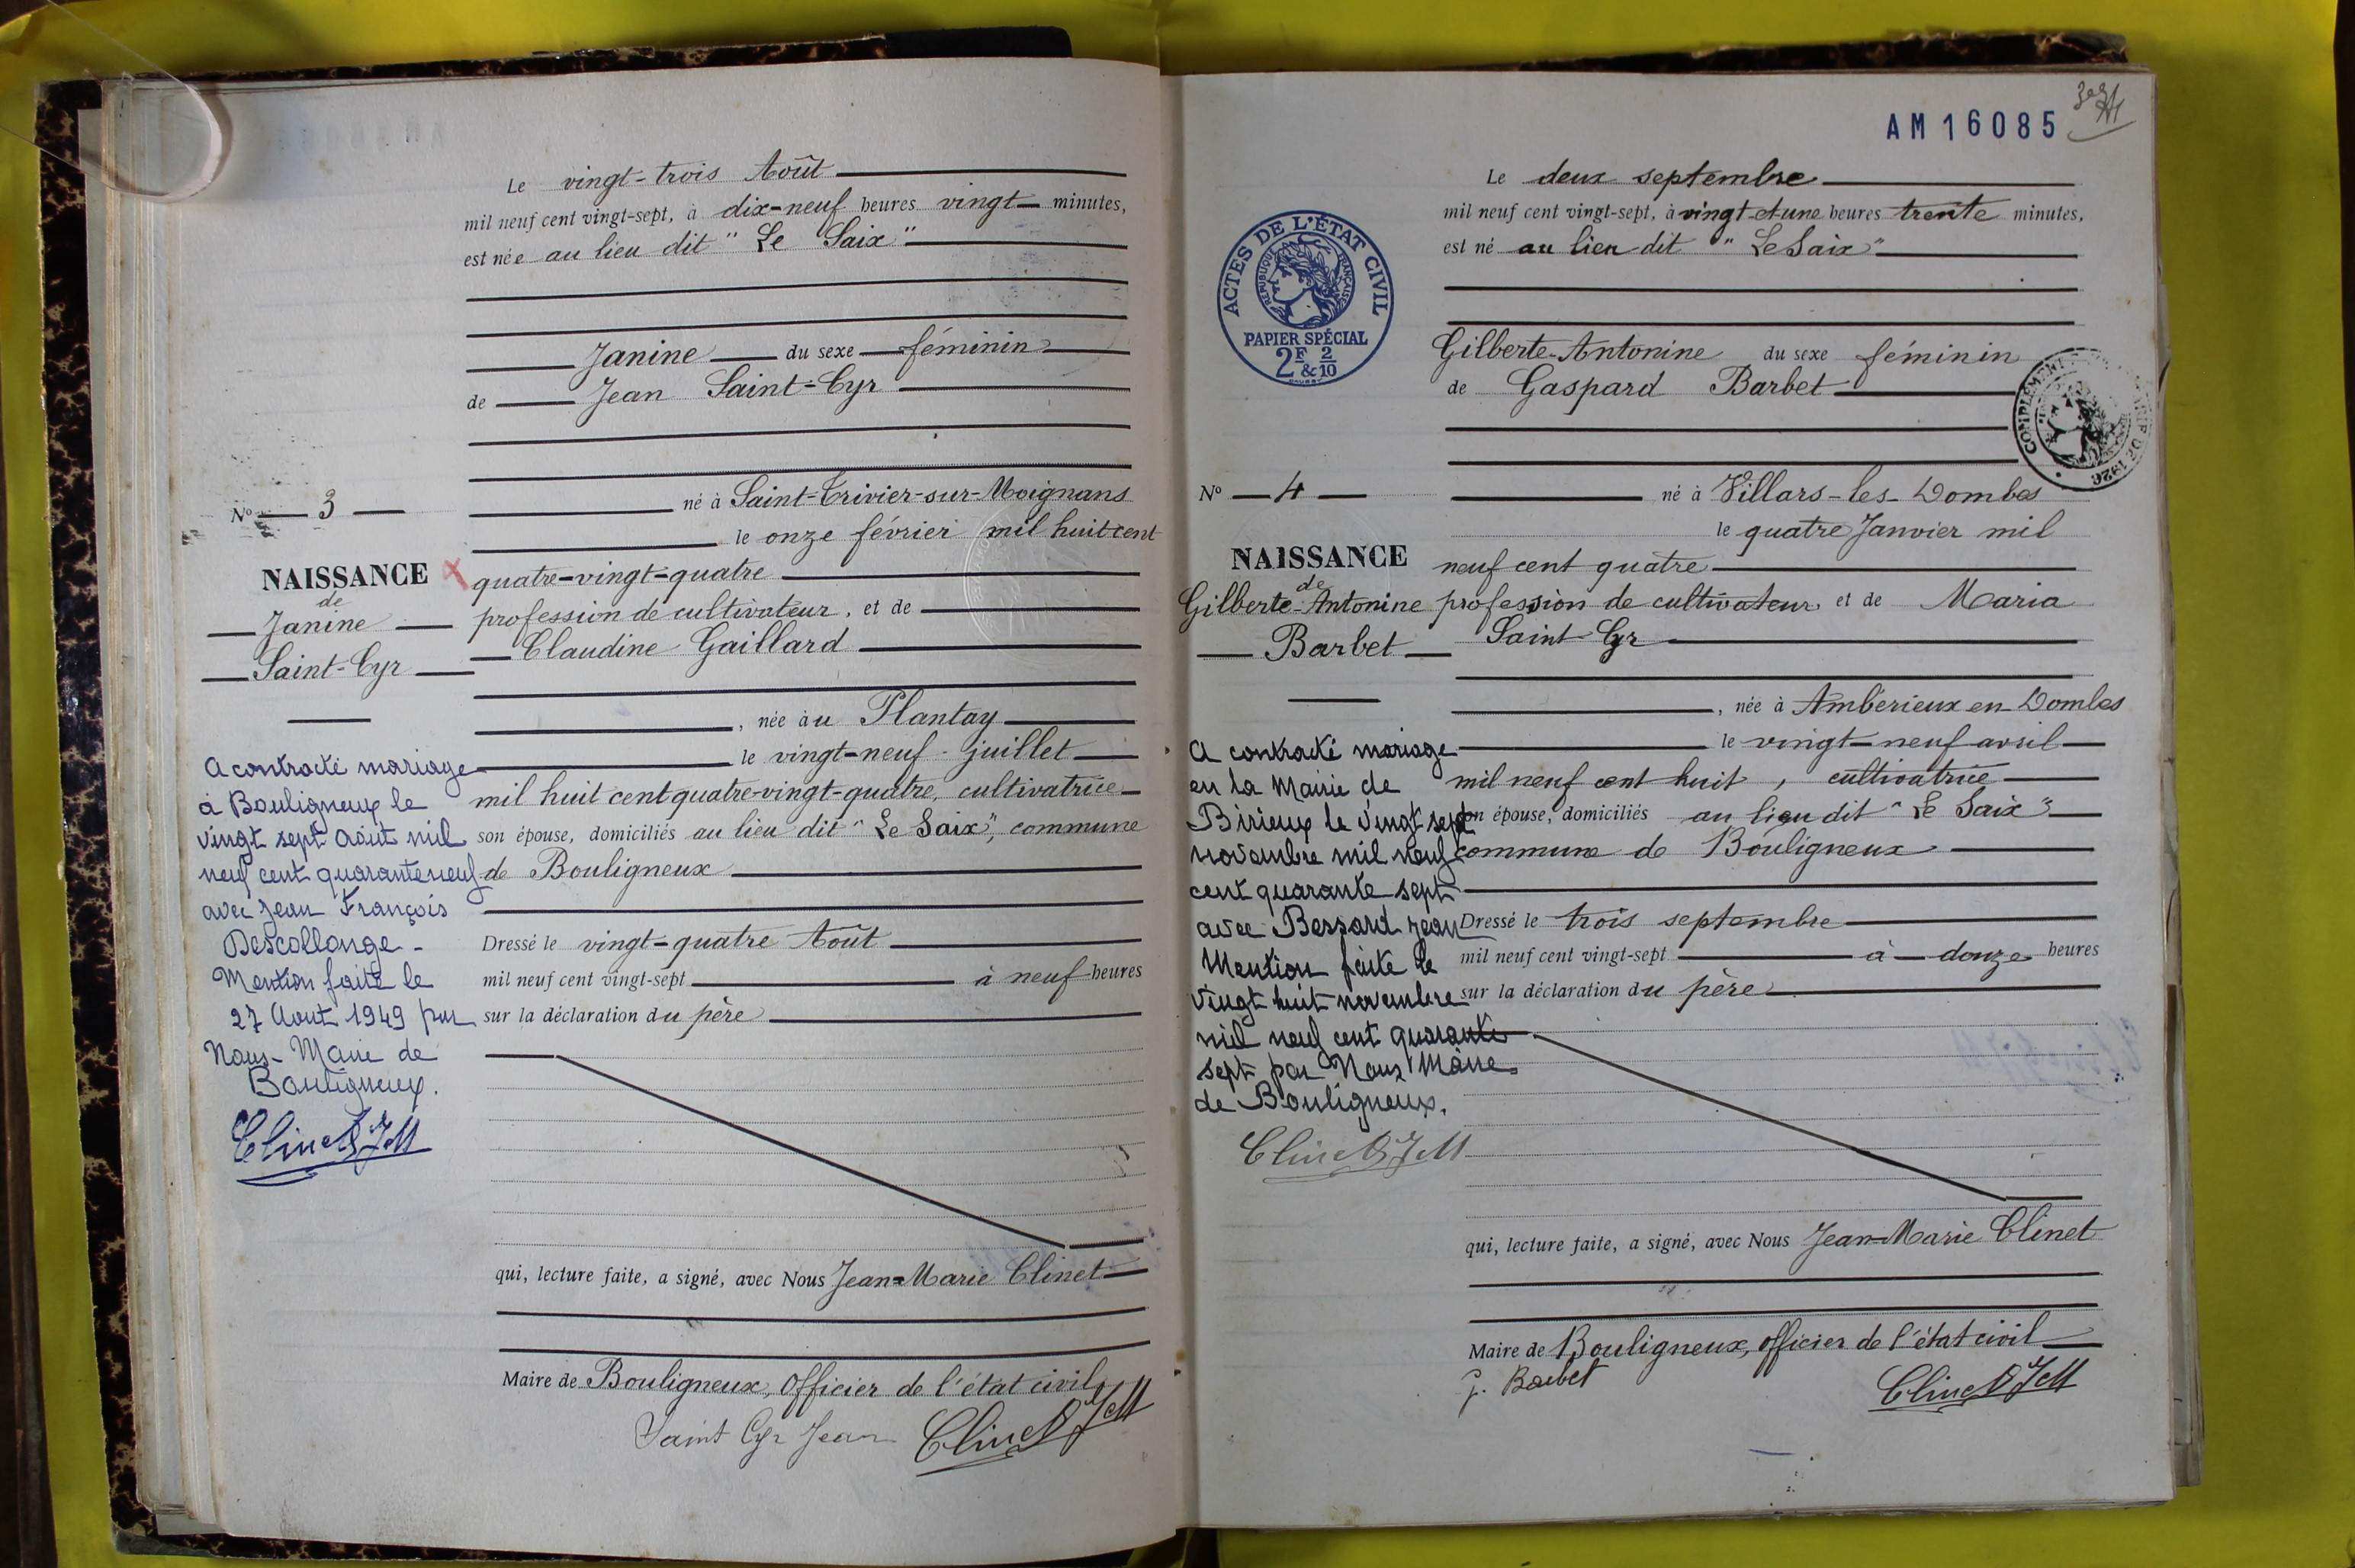 Le vingt-trois Août
mil neuf cent vingt-sept, à dix-neuf heures vingt minutes,
est née au lieu dit "Le Saix"
Janine du sexe féminin
de Jean Saint-Cyr
né à Saint-Trivier-sur-Moignans
le onze février mil huit cent
quatre-vingt-quatre
profession de cultivateur, et de
Claudine Gaillard
, née au Plantay
le vingt-neuf juillet
mil huit cent quatre-vingt-quatre, cultivatrice
son épouse, domiciliés au lieu dit "Le Saix", commune
de Bouligneux
Dressé le vingt-quatre Août
mil neuf cent vingt-sept à neuf heures
sur la déclaration du père
qui, lecture faite, a signé, avec Nous Jean-Marie Clinet
Maire de Bouligneux, officier de l'état civil
Saint Cyr Jean Clinet JM
No 3
NAISSANCE
de
Janine
Saint-Cyr
A contracté mariage
à Bouligneux le
vingt sept Août mil
neuf cent quarante neuf
avec Jean François
Descollonge -
Mention faite le
27 Aout 1949 par
Nous - Maire de
Bouligneux.
Clinet JM
AM 16085
ACTES DE L'ÉTAT CIVIL
RÉPUBLIQUE FRANÇAISE
PAPIER SPÉCIAL
2F & 2/10
COMPLÉMENT DE 1926
Le deux septembre
mil neuf cent vingt-sept, à vingt et une heures trente minutes,
est né au lieu dit "Le Saix"
Gilberte-Antonine du sexe féminin
de Gaspard Barbet
né à Villars-les-Dombes
le quatre Janvier mil
neuf cent quatre
profession de cultivateur, et de Maria
Saint-Cyr
, née à Ambérieux en Dombes
le vingt-neuf avril
mil neuf cent huit, cultivatrice
son épouse, domiciliés au lieu dit "Le Saix"
commune de Bouligneux
Dressé le trois septembre
mil neuf cent vingt-sept à douze heures
sur la déclaration du père
qui, lecture faite, a signé, avec Nous Jean-Marie Clinet
Maire de Bouligneux, officier de l'état civil
G. Barbet Clinet JM
No 4
NAISSANCE
de
Gilberte-Antonine
Barbet
A contracté mariage
en la Mairie de
Birieux le vingt sept
novembre mil neuf
cent quarante sept
avec Bessard Jean
Mention faite le
vingt huit novembre
mil neuf cent quarante
sept par Nous Maire
de Bouligneux.
Clinet JM